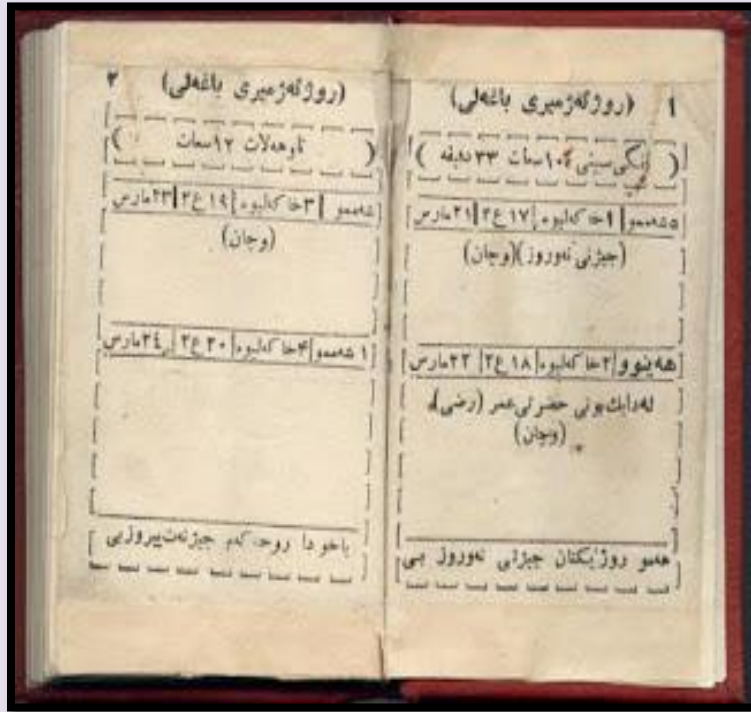 ١ (روژگەژمیری باغەلی)
١٠ سعات ٣٣ دقیقە
٥شەممو | ١خاکەلیوە | ١٧ع٢ | ٢١مارس
(جیژنی نەوروز)(وچان)
هەینوو | ٢خاکەلیوە | ١٨ع٢ | ٢٢مارس
لەدایك بونی حضرتی عمر (رضی)
(وچان)
هەمو روژیکتان جیژنی نەوروز بی
٢ (روژگەژمیری باغەلی)
( تاوهەلات ١٢سعات )
شەممو | ٣خاکەلیوە | ١٩ع٢ | ٢٣مارس
(وچان)
١شەممو | ۴خاکەلیوە | ٢٠ع٢ | ٢٤مارس
یاخودا روحەکەم جیژنەت پیروزبی